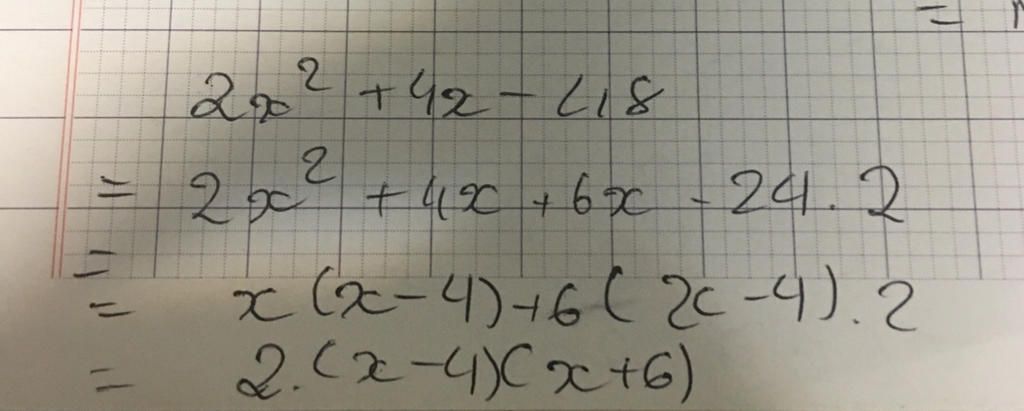 =
2x² + 4x - 48
= 2x² + 4x + 6x - 24 . 2
=
= x (x - 4) + 6 ( x - 4) . 2
= 2. (x - 4)(x + 6)